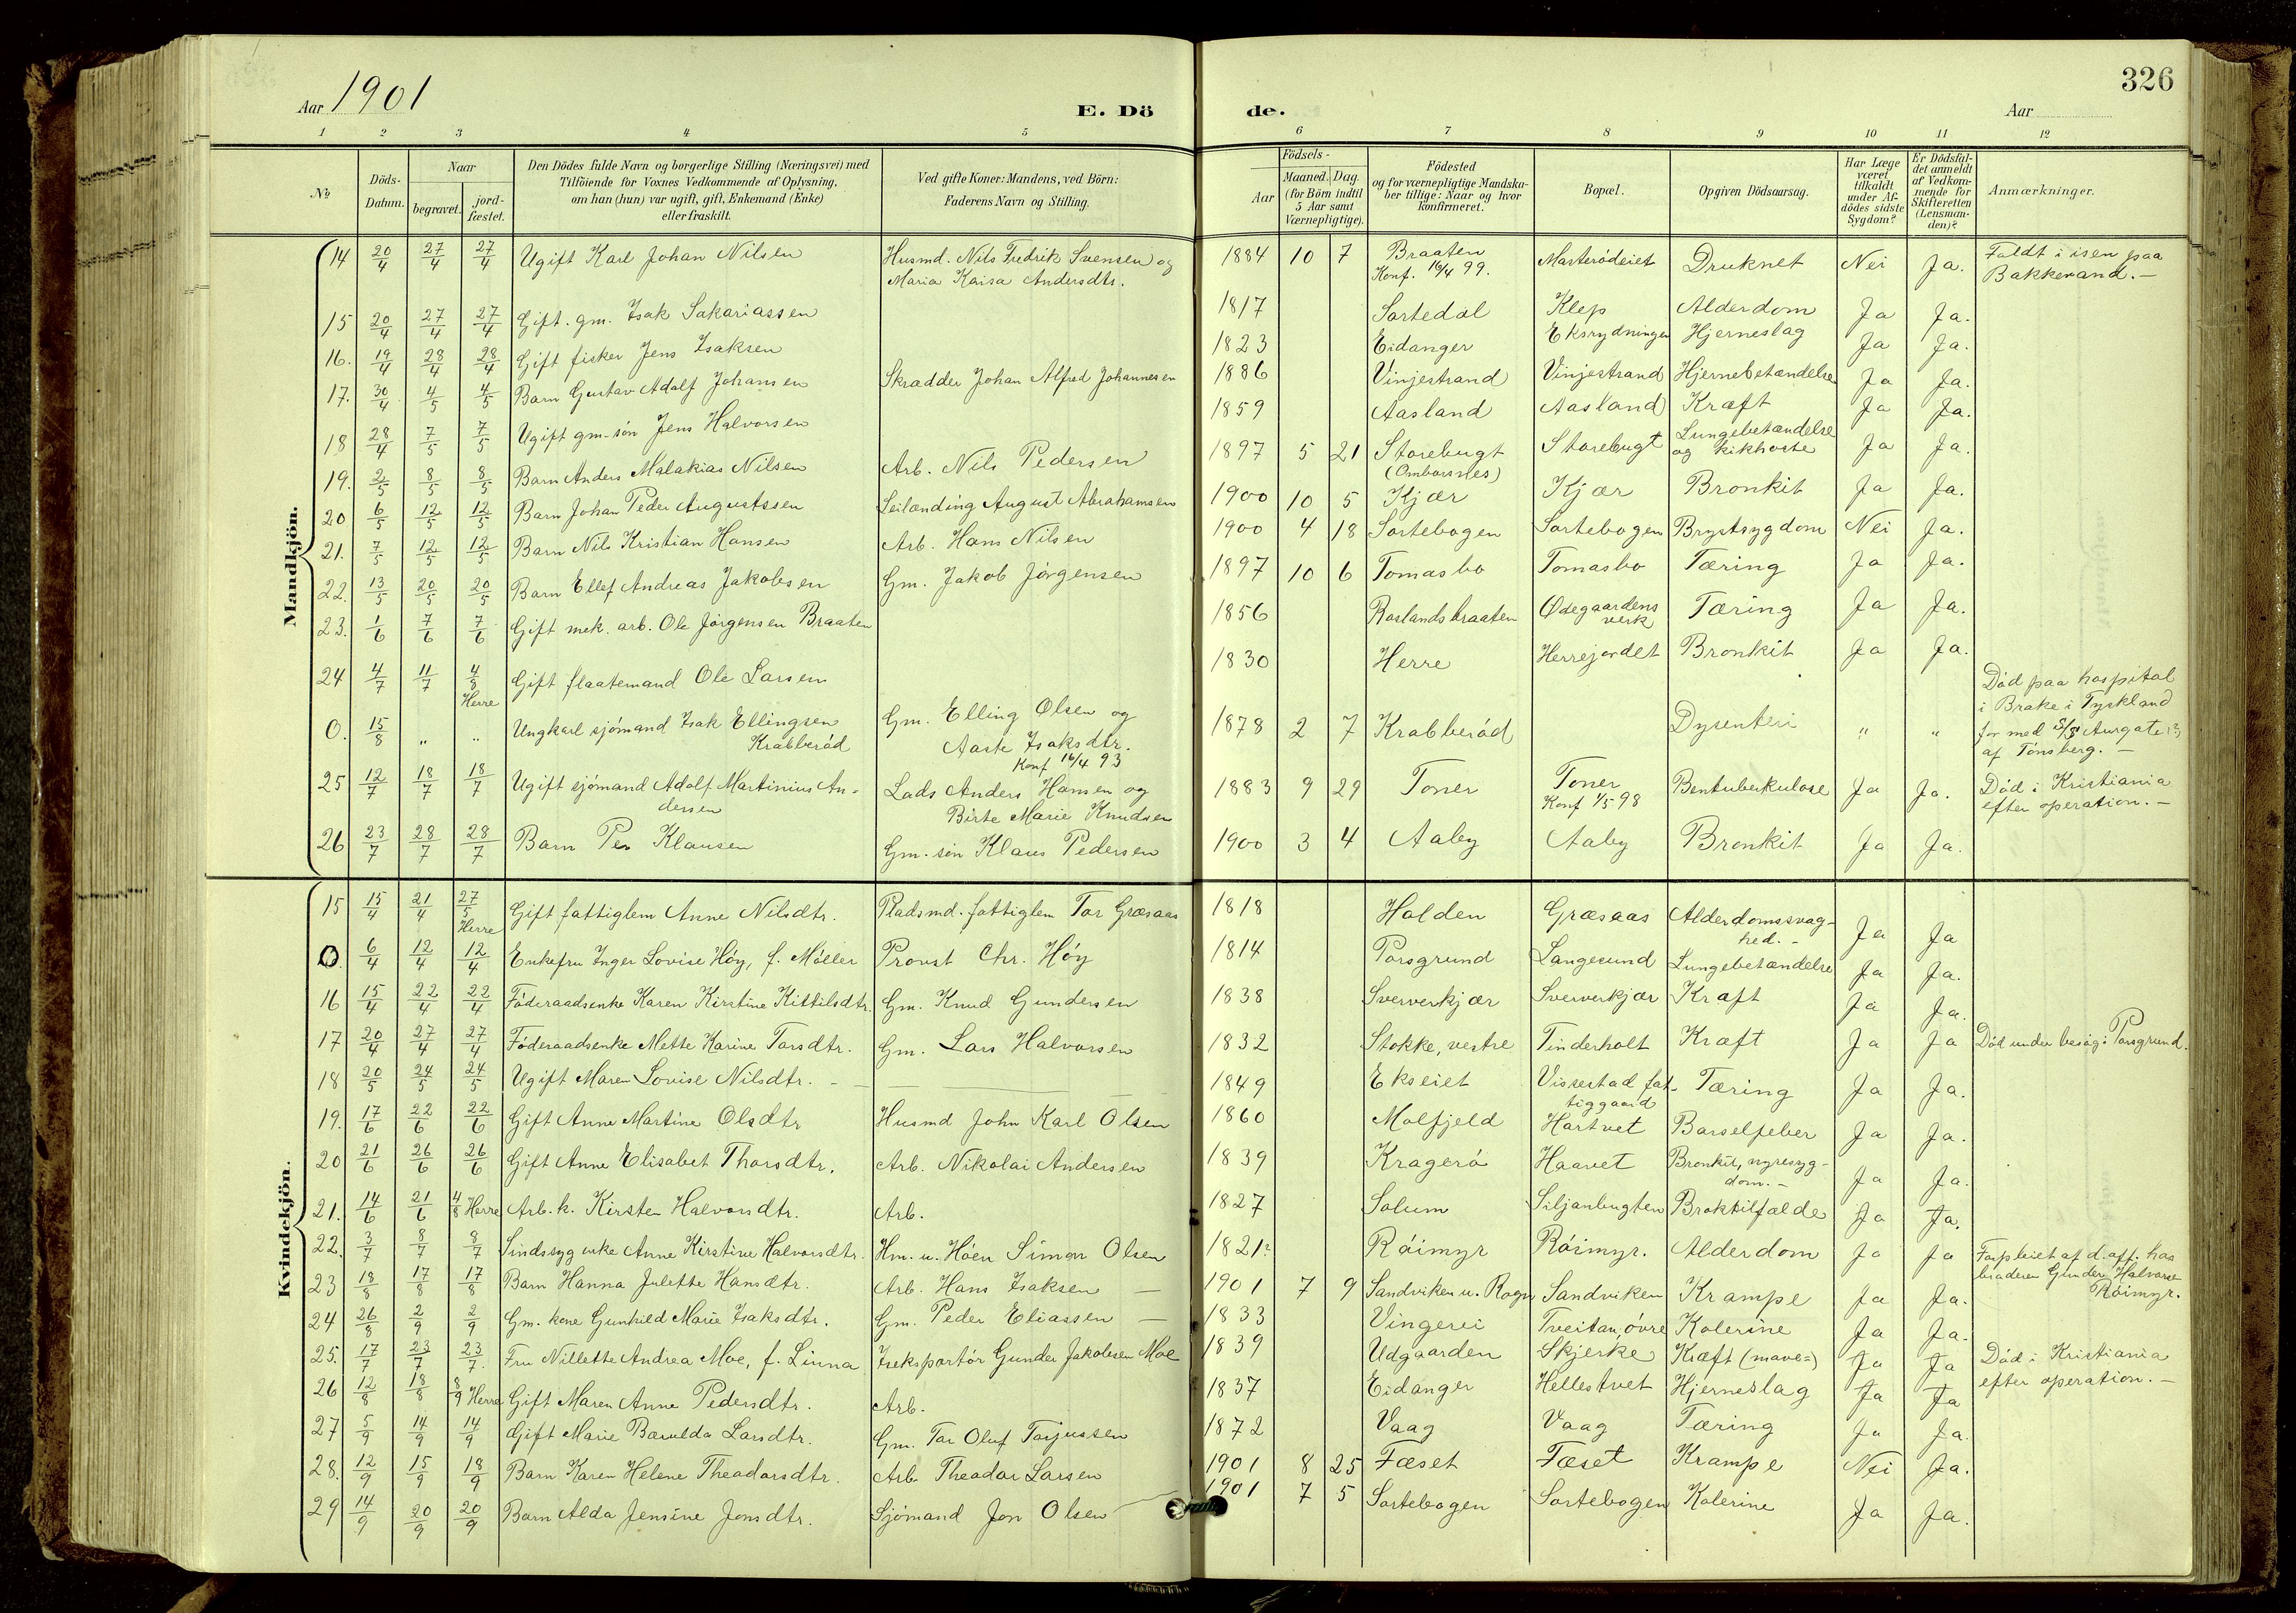 326
Aar 1901
E. Dö
de.
Aar
1 2 3 4 5 6 7 8 9 10 11 12
№
Döds-Datum.
Naar
begravet.
jord-fæstet.
Den Dödes fulde Navn og borgerlige Stilling (Næringsvei) med
Tilföiende for Voxnes Vedkommende af Oplysning,
om han (hun) var ugift, gift, Enkemand (Enke)
eller fraskilt.
Ved gifte Koner: Mandens, ved Börn:
Faderens Navn og Stilling.
Födsels-
Aar
Maaned. Dag.
(for Börn indtil
5 Aar samt
Værnepligtige).
Födested
og for værnepligtige Mandska-
ber tillige: Naar og hvor
konfirmeret.
Bopæl.
Opgiven Dödsaarsag.
Har Læge
været
tilkaldt
under Af-
dödes sidste
Sygdom?
Er Dödsfal-
det anmeldt
af Vedkom-
mende for
Skifteretten
(Lensman-
den)?
Anmærkninger.
Mandkjön.
14 20/4 27/4 27/4 Ugift Karl Johan Nilsen Husmd. Nils Fredrik Svensen og 1884 10 7 Braaten Masterödeiet Druknet Nei Ja. Faldt i isen paa
Maria Kaisa Andersdtr. Konf. 16/4 99. Bakkevand.-
15 20/4 27/4 27/4 Gift. gm. Isak Sakariassen 1817 Sortedal Klep Alderdom Ja Ja.
16. 19/4 28/4 28/4 Gift fisker Jens Isaksen 1823 Eidanger Eksrydningen Hjerneslag Ja Ja.
17. 30/4 4/5 4/5 Barn Gustav Adolf Johansen Skrædder Johan Alfred Johannesen 1886 Vinjestrand Vinjestrand Hjernebetændelse Ja Ja.
18 28/4 7/5 7/5 Ugift gm-sön Jens Halvorsen 1859 Aasland Aasland Kræft Ja Ja.
19. 2/5 8/5 8/5 Barn Anders Malakias Nilsen Arb. Nils Pedersen 1897 5 21 Storebugt Storebugt Lungebetændelse Ja Ja.
(Omborsnes) og kikhoste
20 6/5 12/5 12/5 Barn Johan Peder Augustssen Leilænding August Abrahamsen 1900 10 5 Kjær Kjær Bronkit Ja Ja.
21. 7/5 12/5 12/5 Barn Nils Kristian Hansen Arb. Hans Nilsen 1900 4 18 Sortebogen Sortebogen Brystsygdom Nei Ja.
22. 13/5 20/5 20/5 Barn Ellef Andreas Jakobsen Gm. Jakob Jörgensen 1897 10 6 Tomasbo Tomasbo Tæring Ja Ja.
23. 1/6 7/6 7/6 Gift mek. arb. Ole Jörgensen Braaten 1856 Roslandsbraaten Ødegaardens Tæring Ja Ja.
verk
24 4/7 11/7 4/8 Gift flaatemand Ole Larsen 1830 Herre Herrejordet Bronkit Ja Ja.
Herre
O. 15/8 " " Ungkarl sjömand Isak Ellingsen Gm. Elling Olsen og 1878 2 7 Krabberöd Dysenteri " " Död paa hospital
Krabberöd Aaste Isaksdtr. i Brake i Tyskland
Konf 16/4 93 for med S/S
af Tönsberg.-
25 12/7 18/7 18/7 Ugift sjömand Adolf Martinius An- Lods Anders Hansen og 1883 9 29 Toner Toner Bentuberkulose Ja Ja. Död i Kristiania
dersen Birte Marie Knudsen Konf 1/5 98 efter operation.-
26 23/7 28/7 28/7 Barn Per Klausen Gm.-sön Klaus Pedersen 1900 3 4 Aaby Aaby Bronkit Ja Ja.
Kvindekjön.
15 15/4 21/4 27/5 Gift fattiglem Anne Nilsdtr. Pladsmd. fattiglem Tor Græsaas 1818 Halden Græsaas Alderdomssvag- Ja Ja
Herre hed.-
O. 6/4 12/4 12/4 Enkefru Inger Lovise Höy, f. Möller Provst Chr. Höy 1814 Porsgrund Langesund Lungebetændelse Ja Ja.
16 15/4 22/4 22/4 Föderaadsenke Karen Kirstine Kittilsdtr. Gm. Knud Gundersen 1838 Sververkjær Sververkjær Kræft Ja Ja.
17 20/4 27/4 27/4 Föderaadsenke Mette Karine Torsdtr. Gm. Lars Halvorsen 1832 Stokke, vestre Tinderholt Kræft Ja Ja Död under besög i Porsgrund.
18 20/5 24/5 24/5 Ugift Maren Lovise Nilsdtr. 1849 Ekseiet Vissestad fat- Tæring Ja Ja.
tiggaard
19. 17/6 22/6 22/6 Gift Anne Martine Olsdtr Husmd John Karl Olsen 1860 Molfjeld Hartvet Barselfeber Ja Ja.
20 21/6 26/6 26/6 Gift Anne Elisabet Thorsdtr. Arb. Nikolai Andersen 1839 Kragerö Haavet Bronkit, nyresyg- Ja Ja.
dom.-
21. 14/6 21/6 4/8 Herre Arb. k. Kirsten Halvorsdtr. Arb. 1827 Solum Siljanbugten Broktilfælde Ja Ja.
22. 3/7 8/7 8/7 Sindssyg enke Anne Kirstine Halvorsdtr. Hm. u. Höen Simon Olsen 1821? Röimyr Röimyr. Alderdom Ja Ja Forpleiet af d. aff. hos
broderen Gunder Halvorsen
Röimyr.
23 18/8 17/8 17/8 Barn Hanna Julette Hansdtr. Arb. Hans Isaksen 1901 7 9 Sandviken u. Rogn Sandviken Krampe Ja Ja.
24 26/8 2/9 2/9 Gm. kone Gunhild Marie Isaksdtr. Gm. Peder Eliassen 1833 Vingerei Tveitan, övre Kolerine Ja Ja.
25. 17/7 23/7 23/7. Fru Nillette Andrea Moe, f. Linna Iseksportör Gunder Jakobsen Moe 1839 Udgaarden Skjerke Kræft (mave=) Ja Ja Död i Kristiania
efter operation.-
26 12/8 18/8 8/9 Herre Gift Maren Anne Pedersdtr. Arb. 1837 Eidanger Hellestvet Hjerneslag Ja Ja
27 5/9 14/9 14/9 Gift Marie Larsdtr. Gm. Tor Oluf Torjussen 1872 Vaag Vaag Tæring Ja Ja.
28. 12/9 15/9 18/9 Barn Karen Helene Theodorsdtr. Arb. Theodor Larsen 1901 8 25 Fæset Fæset Krampe Nei Ja.
29 14/9 20/9 20/9 Barn Alda Jensine Jonsdtr. Sjömand Jon Olsen 1901 7 5 Sortebogen Sortebogen Kolerine Ja Ja.